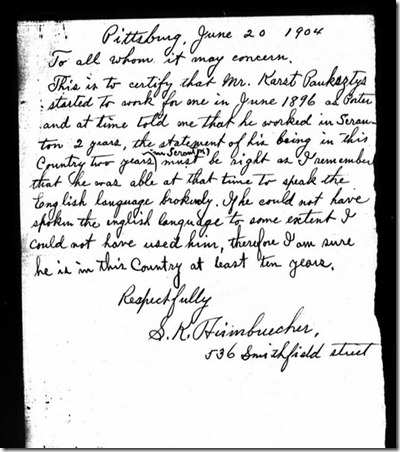 Pittsburg, June 20 1904
To all whom it may concern.
This is to certify that Mr. Karst Pauksztys
started to work for me in June 1896 as Porter
and at time told me that he worked in Scran-
ton 2 years, the statement of his being in this
Country two years (in Scranton) must be right as I remember
that he was able at that time to speak the
English language brokenly. If he could not have
spoken the inglish language to some extent I
could not have used him, therefore I am sure
he is in this Country at least ten years.
Respectfully
S. K. Hirnbuecher,
536 Smithfield street